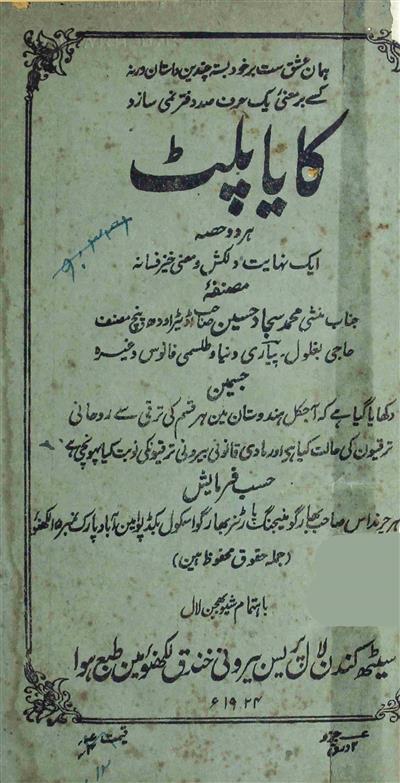 ہمان عشق ست بر خود بستہ چندین داستان ورنہ
کسے بر معنئ یک حرف صد دفتر نمی سازد
کایا پلٹ
ہر دو حصہ
ایک نہایت دلکش و معنی خیز فسانہ
مصنفۂ
جناب منشی محمد سجاد حسین صاحب اڈیٹر اودھ پنچ مصنف
حاجی بغلول۔ پیاری دنیا و طلسمی فانوس وغیرہ
جسمین
دکھایا گیا ہے کہ آجکل ہندوستان مین ہر قسم کی ترقی سے روحانی
ترقیون کی حالت کیا ہے اور مادی قانونی بیرونی ترقیونکی نوبت کیا پہونچی ہے
حسب فرمایش
ہر چرنداس صاحب بھارگو منیجنگ پارٹنر بھارگوا سکول بکڈپو امین آباد پارک نمبر ۱۵ لکھنؤ
(جملہ حقوق محفوظ ہین)
باہتمام شیو بھجن لال
سیٹھ کندن لال پریس بیرونی خندق لکھنؤ مین طبع ہوا
۱۹۲۴ء
قیمت